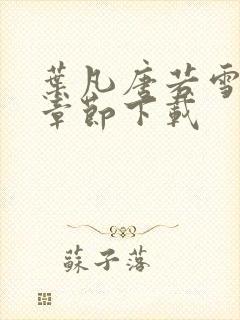 葉凡唐若雪
章節下載
蘇子落